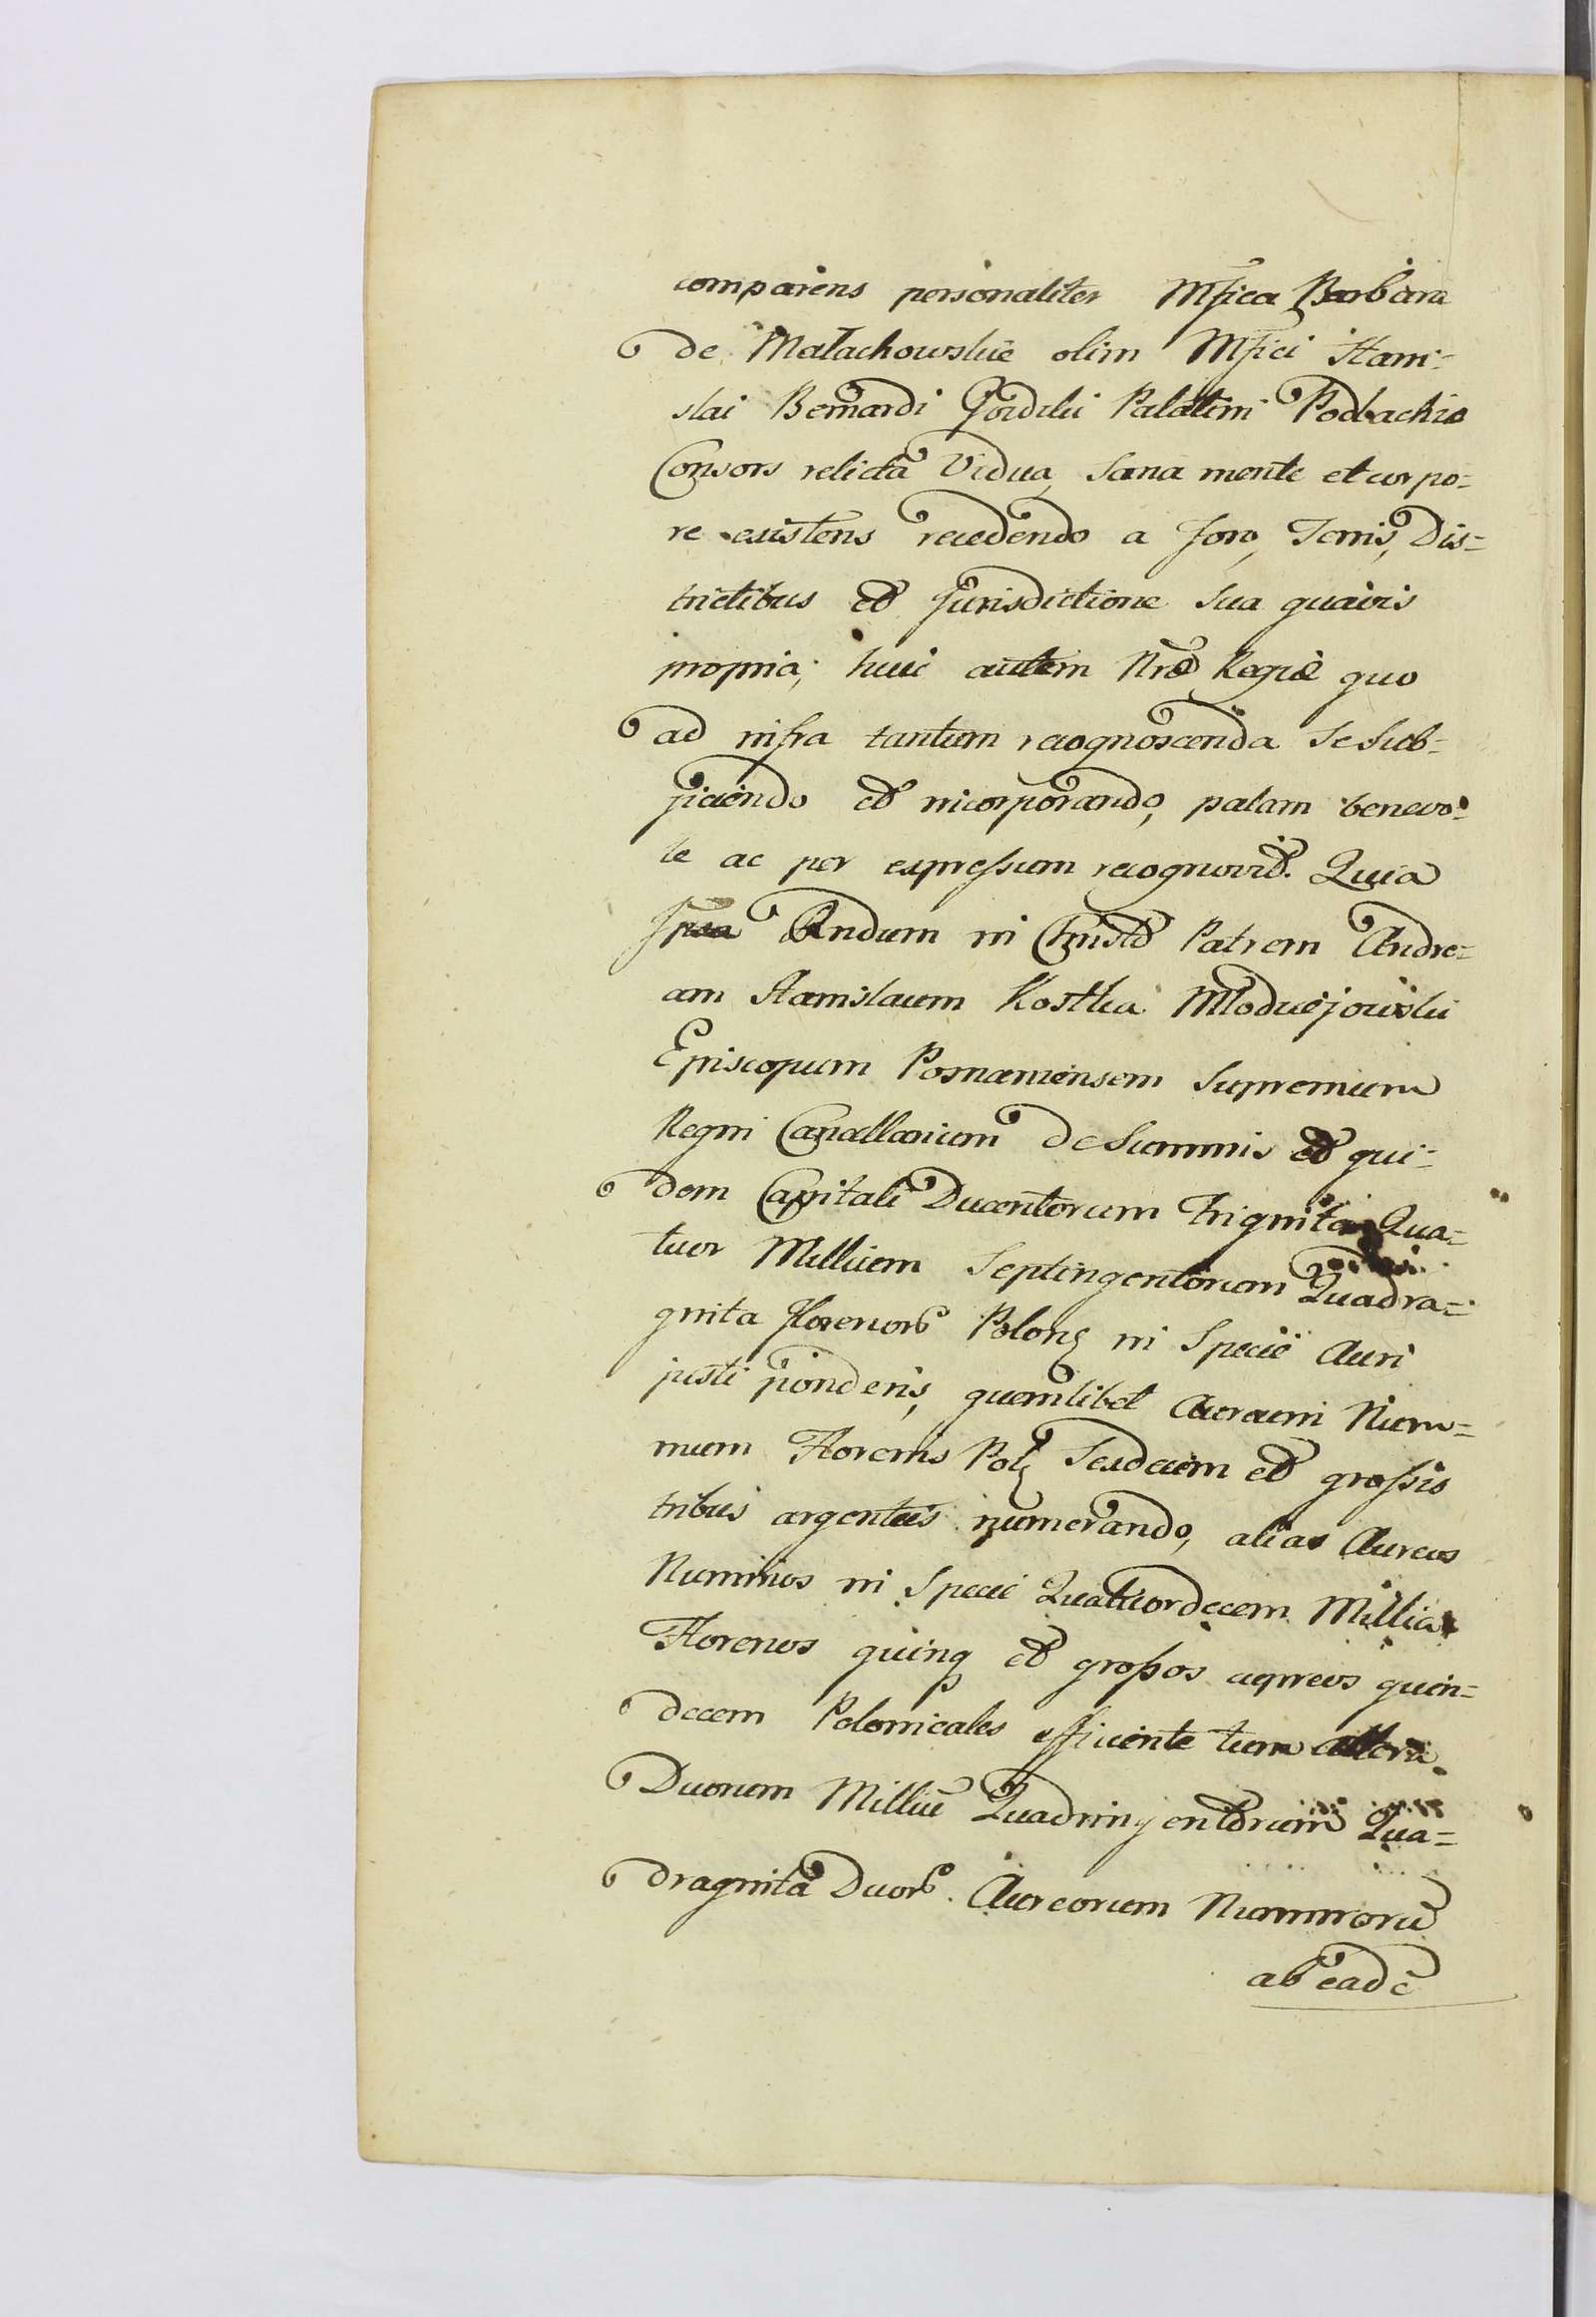 comparens personaliter Mfica Barbara
de Małachowskie olim Mfici Stani=
slai Bernardi Gozdzki Palatini Podlachiæ
Consors relicta Vidua, sana mente et corpo=
re existens recedendo a foro, Terris, Dis=
trictibus et Jurisdictione sua quavis
propria; huic autem Nrae Regiae quo
ad infra tantum recognoscenda se sub=
jiciendo et incorporando, palam benevo=
le ac per expressum recognovit. Quia
Ipsa Rndum in Christo Patrem Andre=
am Stanislaum Kostka Młodziejowski
Episcopum Posnaniensem Supremum
Regni Cancellarium de Summis et qui=
dem Capitali Ducentorum Triginta Qua=
tuor Millium Septingentorum Quadra=
ginta Florenorb Polon in Specie Auri
justi ponderis, quemlibet Aureum Num=
mum Florenis Pol Sexdecim et grossis
tribus argenteis numerando, alias Aureos
Nummos in Specie Quatuordecem Millia
Florenos quinq et grossos cupreos quin=
decem Polonicales efficiente tum altera
Duorum Milliū Quadringentorum Qua=
draginta Duorb. Aureorum Nummorū
ab eadē